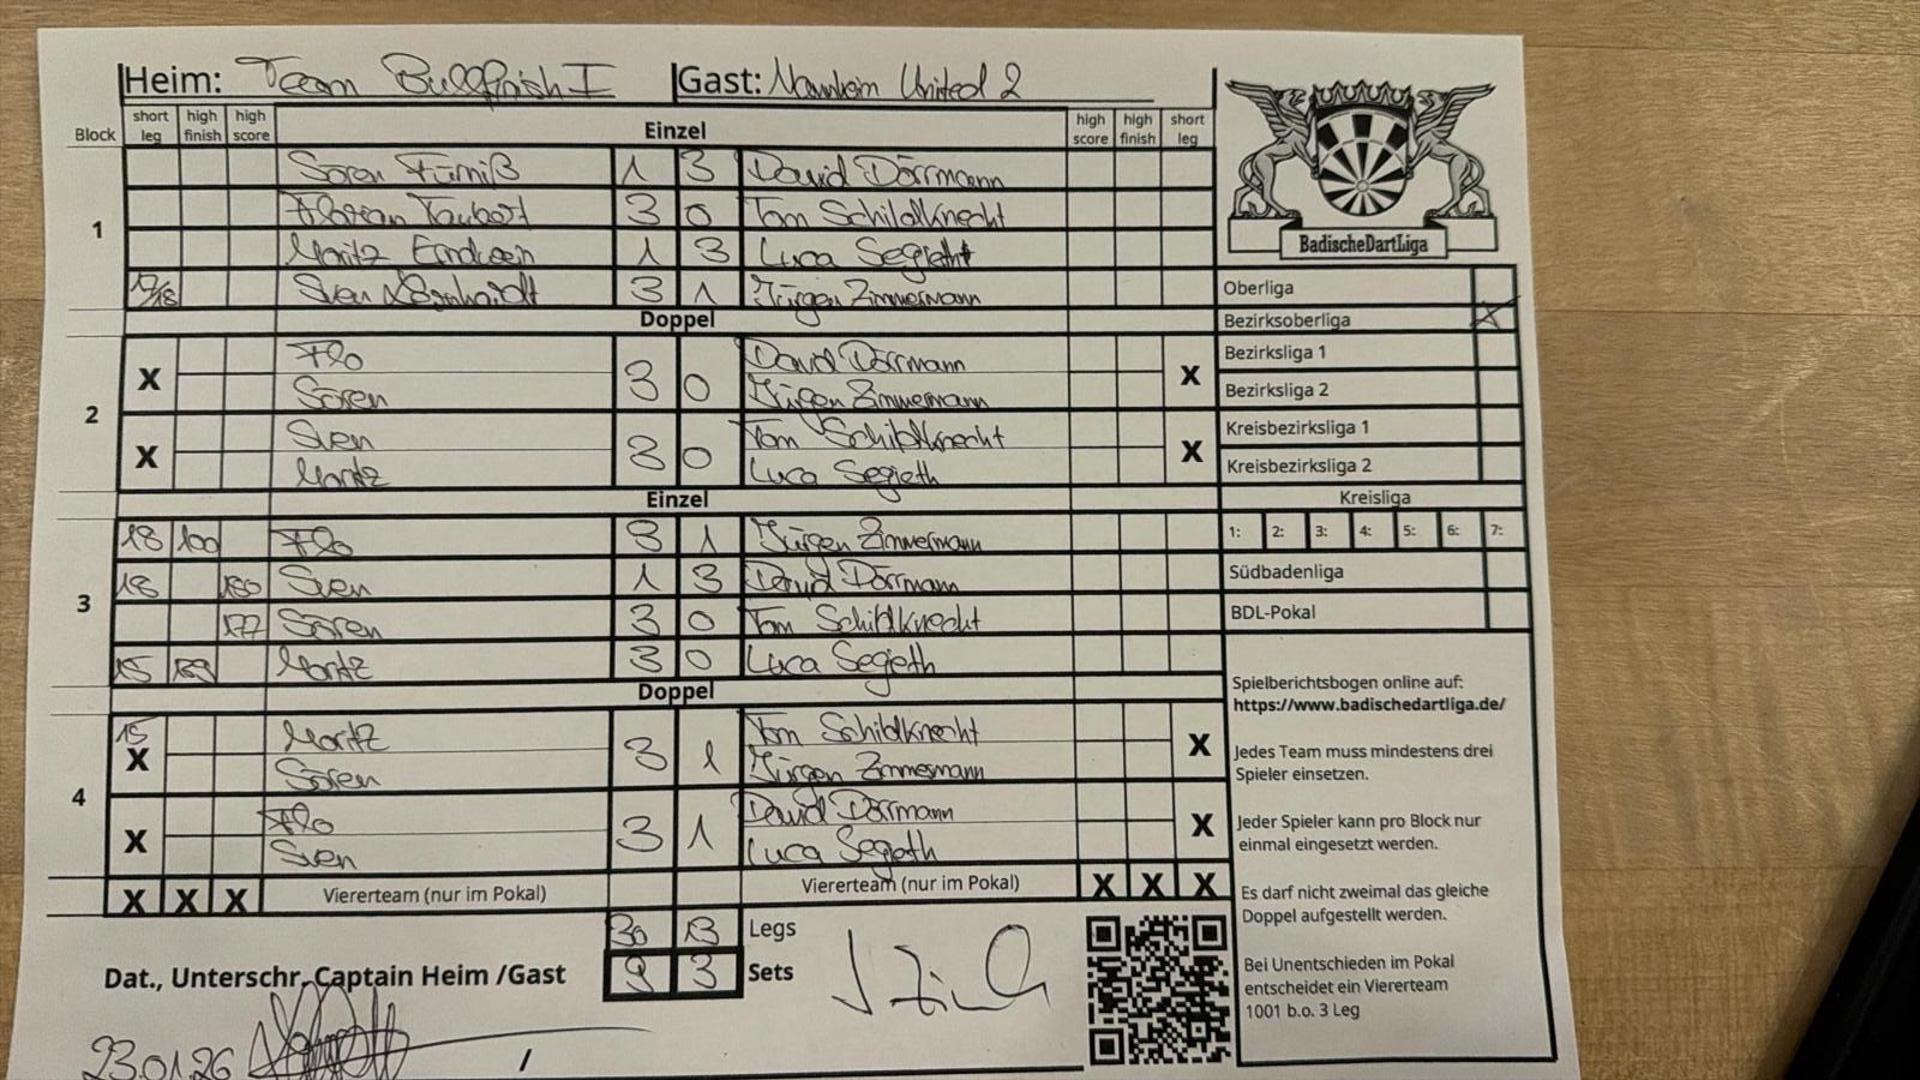 Heim: Team Bullfinish I Gast: Mannheim United 2
Block short leg high finish high score Einzel high score high finish short leg
1
Sören Fürniß 1 3 David Dörrmann
Florian Taubert 3 0 Tom Schildknecht
Moritz 1 3 Luca Segieth
17/18 Sven 3 1 Jürgen Zimmermann
Doppel
2
X Flo 3 0 David Dörrmann X
Sören Jürgen Zimmermann
X Sven 3 0 Tom Schildknecht X
Moritz Luca Segieth
Einzel
3
18 100 Flo 3 1 Jürgen Zimmermann
18 180 Sven 1 3 David Dörrmann
177 Sören 3 0 Tom Schildknecht
15 139 Moritz 3 0 Luca Segieth
Doppel
4
15 X Moritz 3 1 Tom Schildknecht X
Sören Jürgen Zimmermann
X Flo 3 1 David Dörrmann X
Sven Luca Segieth
X X X Viererteam (nur im Pokal) Viererteam (nur im Pokal) X X X
30 13 Legs
9 3 Sets
Dat., Unterschr. Captain Heim /Gast
23.01.26 /
BadischeDartLiga
Oberliga
Bezirksoberliga X
Bezirksliga 1
Bezirksliga 2
Kreisbezirksliga 1
Kreisbezirksliga 2
Kreisliga
1: 2: 3: 4: 5: 6: 7:
Südbadenliga
BDL-Pokal
Spielberichtsbogen online auf:
https://www.badischedartliga.de/
Jedes Team muss mindestens drei
Spieler einsetzen.
Jeder Spieler kann pro Block nur
einmal eingesetzt werden.
Es darf nicht zweimal das gleiche
Doppel aufgestellt werden.
Bei Unentschieden im Pokal
entscheidet ein Viererteam
1001 b.o. 3 Leg